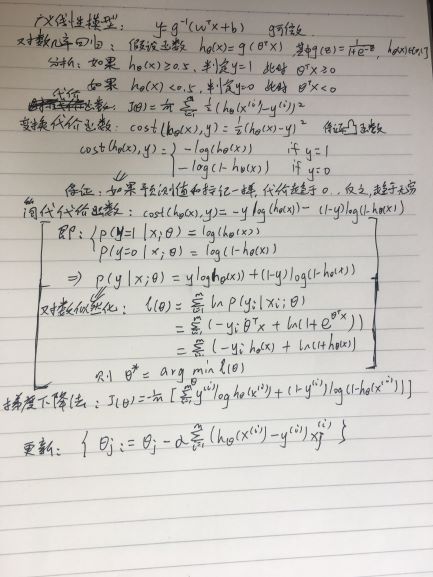 广义线性模型: y=g⁻¹(wᵀx+b) g可微
对数几率回归: 假设函数 hθ(x)=g(θᵀx) 其中g(z)=1/(1+e^-z), hθ(x)∈[0,1]
分析: 如果 hθ(x)≥0.5, 判定y=1 此时 θᵀx≥0
如果 hθ(x)<0.5, 判定y=0 此时 θᵀx<0
代价函数: J(θ)=1/m Σ_{i=1}^m ½(hθ(x⁽ⁱ⁾-y⁽ⁱ⁾)²
变换代价函数: cost(hθ(x),y)=½(hθ(x)-y)² 保证凸函数
cost(hθ(x),y)={ -log(hθ(x)) if y=1
-log(1-hθ(x)) if y=0
保证: 如果预测值和标记一样, 代价趋于0.. 反之, 趋于无穷
简化代价函数: cost(hθ(x),y)=-ylog(hθ(x))-(1-y)log(1-hθ(x))
即: { P(y=1|x;θ)=log(hθ(x))
P(y=0|x;θ)=log(1-hθ(x))
⇒ P(y|x;θ)=yloghθ(x))+(1-y)log(1-hθ(x))
对数似然化: l(θ)=Σ_{i=1}^m ln P(yi|xi;θ)
=Σ_{i=1}^m (-yiθᵀx+ln(1+e^{θᵀx}))
=Σ_{i=1}^m (-yi hθ(x)+ln(1+hθ(x))
则 θ*=arg min l(θ)
梯度下降法: J(θ)=-1/m [Σ_{i=1}^m y⁽ⁱ⁾loghθ(x⁽ⁱ⁾)+(1-y⁽ⁱ⁾)log(1-hθ(x⁽ⁱ⁾))]
更新: { θj:=θj-αΣ_{i=1}^m(hθ(x⁽ⁱ⁾)-y⁽ⁱ⁾)xj⁽ⁱ⁾ }